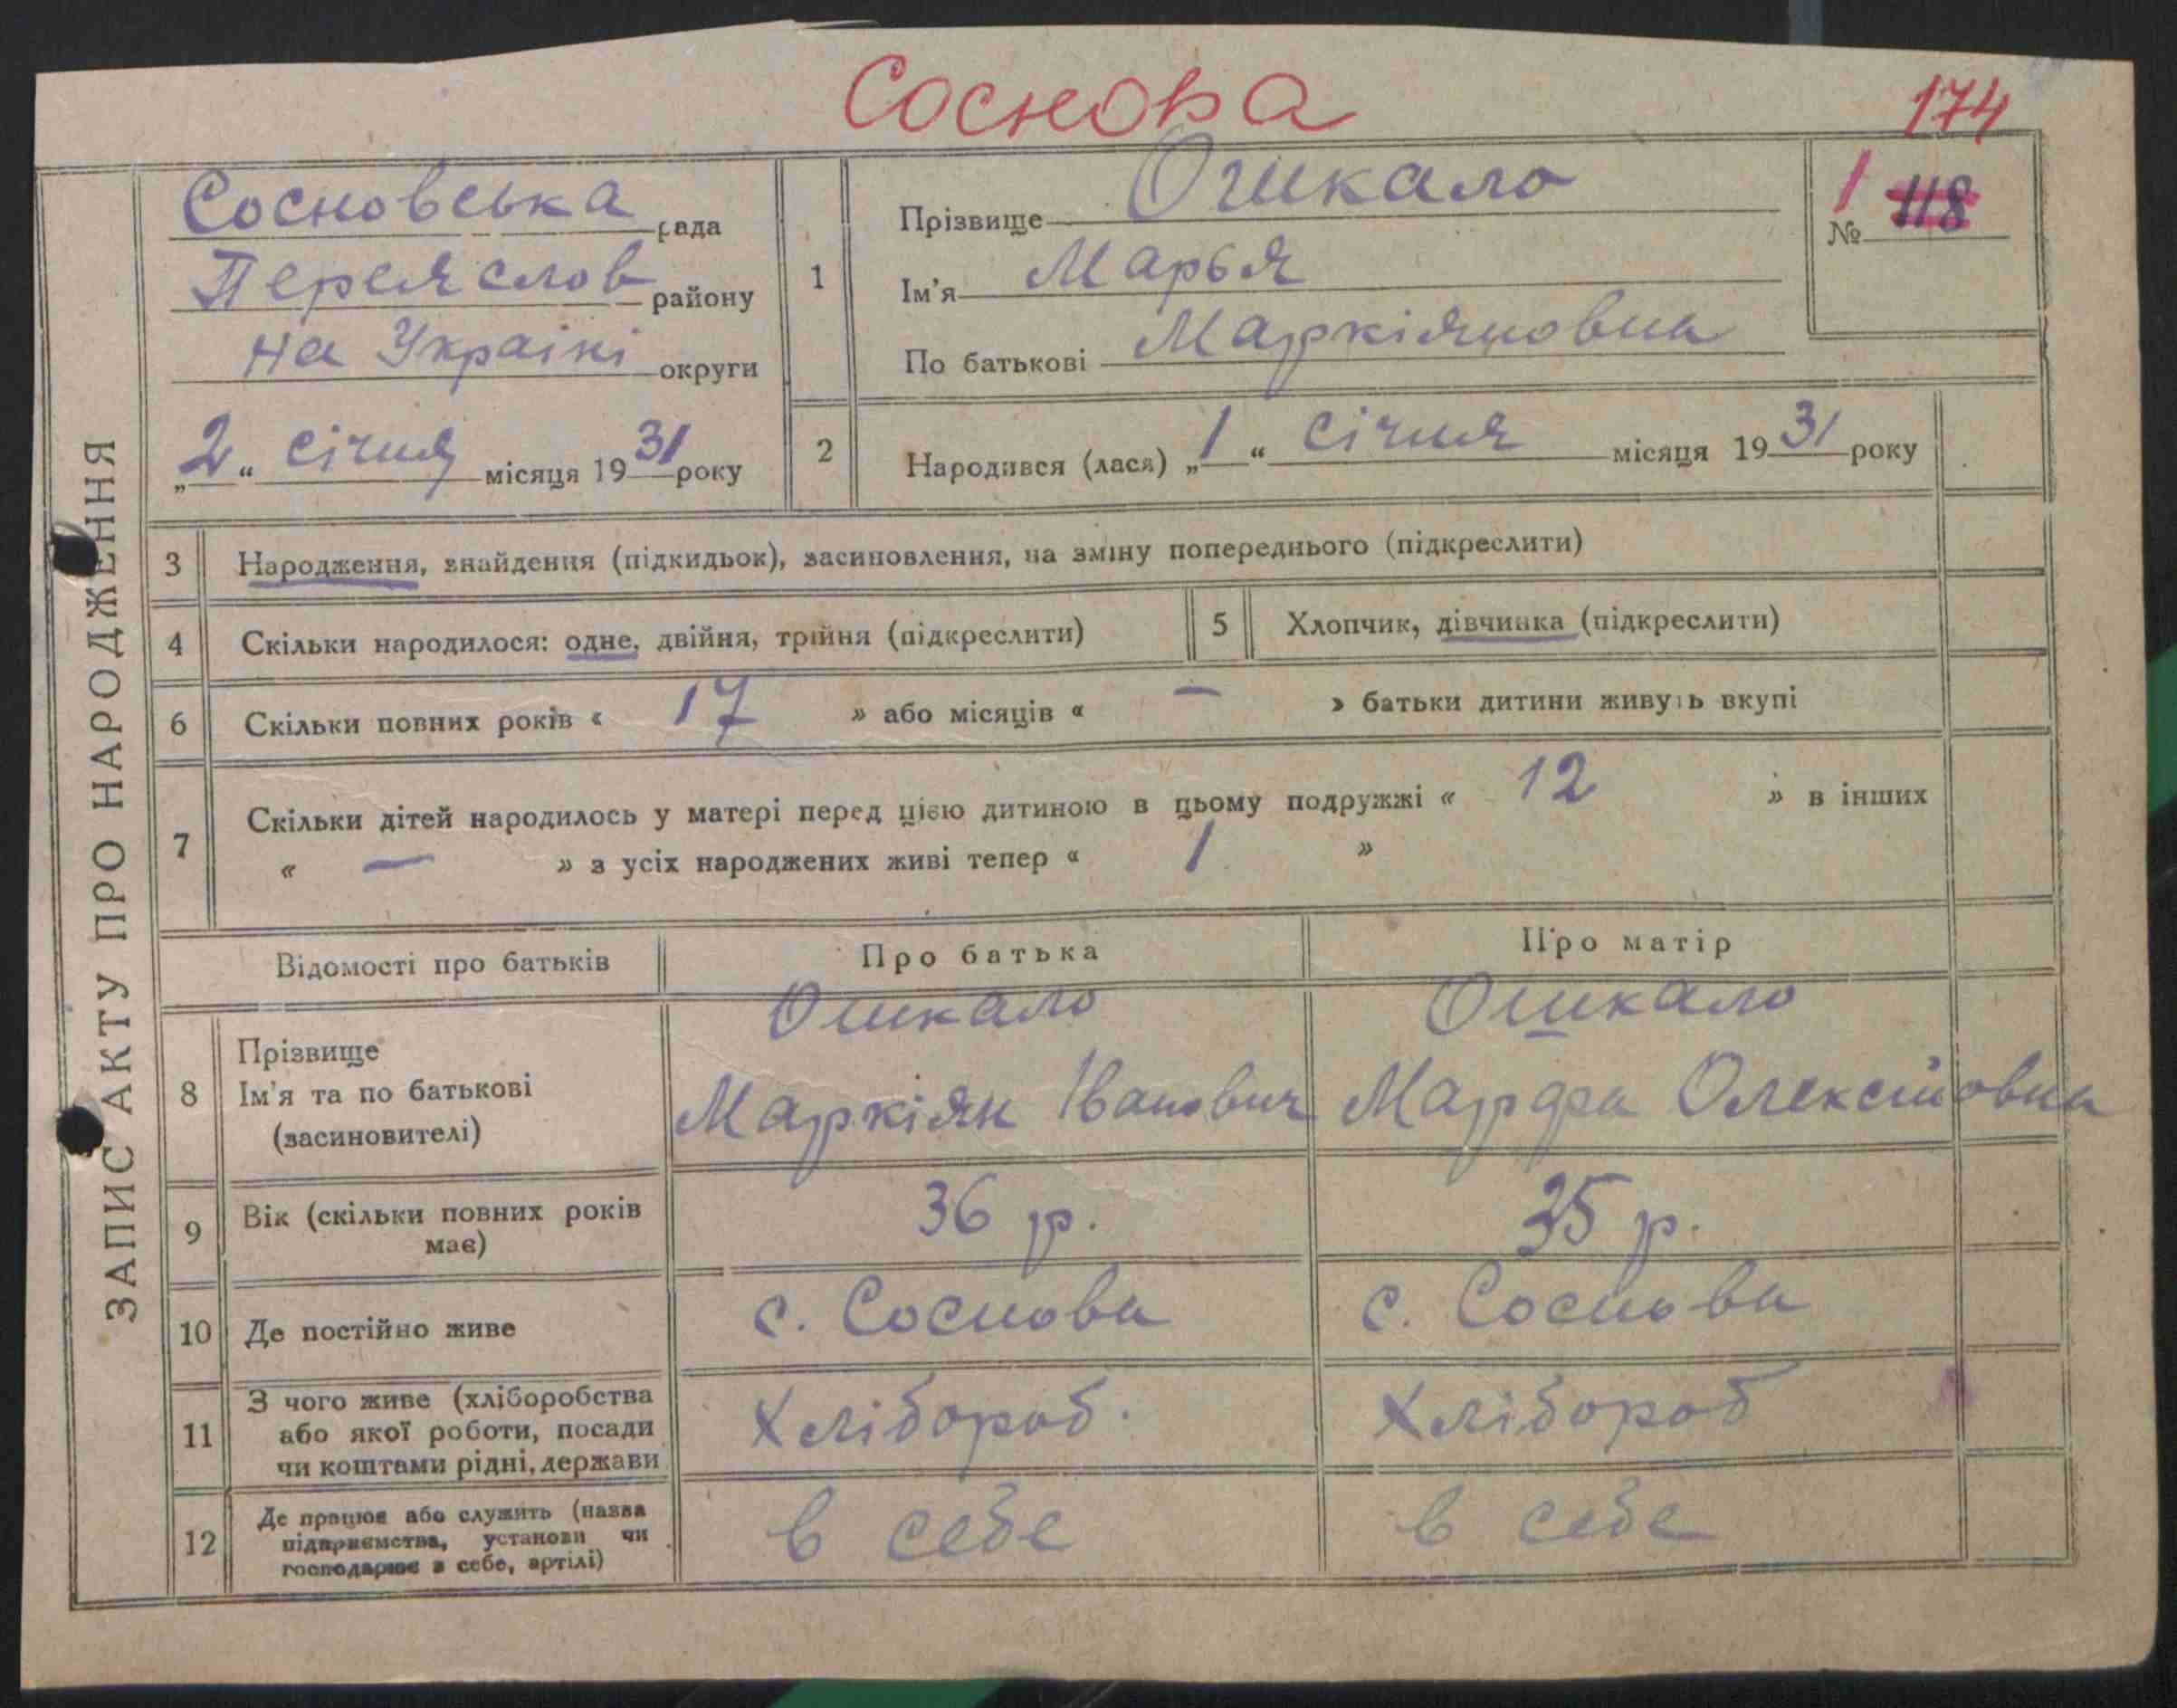 Соснова
174
Сосновська рада
Переяслов району
на Україні округи
„2“ січня місяця 1931 року
1
Прізвище Ошкало
Ім'я Марья
По батькові Маркіяновна
1
№ 118
2
Народився (лася) „1“ січня місяця 1931 року
ЗАПИС АКТУ ПРО НАРОДЖЕННЯ
3 Народження, знайдення (підкидьок), засиновлення, на зміну попереднього (підкреслити)
4 Скільки народилося: одне, двійня, трійня (підкреслити)
5 Хлопчик, дівчинка (підкреслити)
6 Скільки повних років « 17 » або місяців « — » батьки дитини живуть вкупі
7 Скільки дітей народилось у матері перед цією дитиною в цьому подружжі « 12 » в інших
« — » з усіх народжених живі тепер « 1 »
Відомості про батьків
Про батька
Про матір
8
Прізвище
Ім'я та по батькові
(засиновителі)
Ошкало
Маркіян Іванович
Ошкало
Марфа Олексіївна
9
Вік (скільки повних років
має)
36 р.
35 р.
10 Де постійно живе
с. Соснова
с. Соснова
11
З чого живе (хліборобства
або якої роботи, посади
чи коштами рідні, держави
Хлібороб.
Хлібороб
12
Де працює або служить (назва
підприємства, установи чи
господарює в себе, артілі)
в себе
в себе